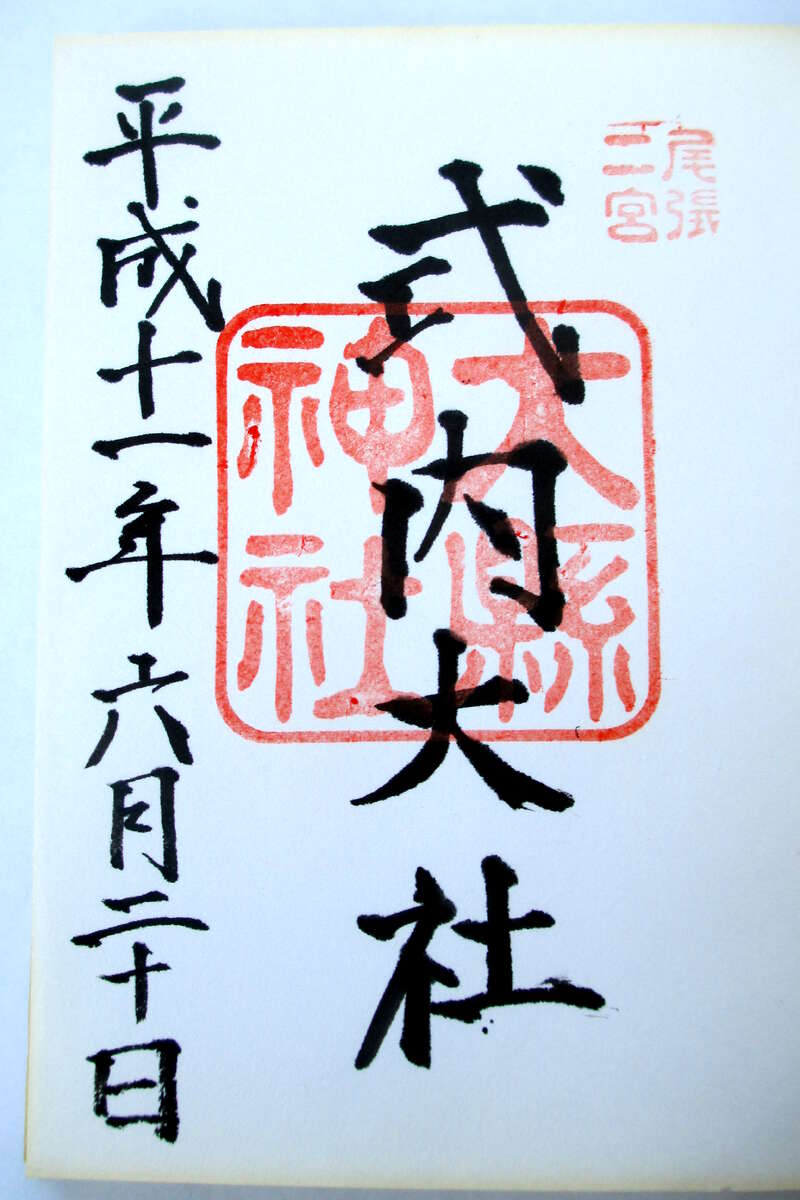 尾張
二宮
式内大社
大縣
神社
平成十一年六月二十日